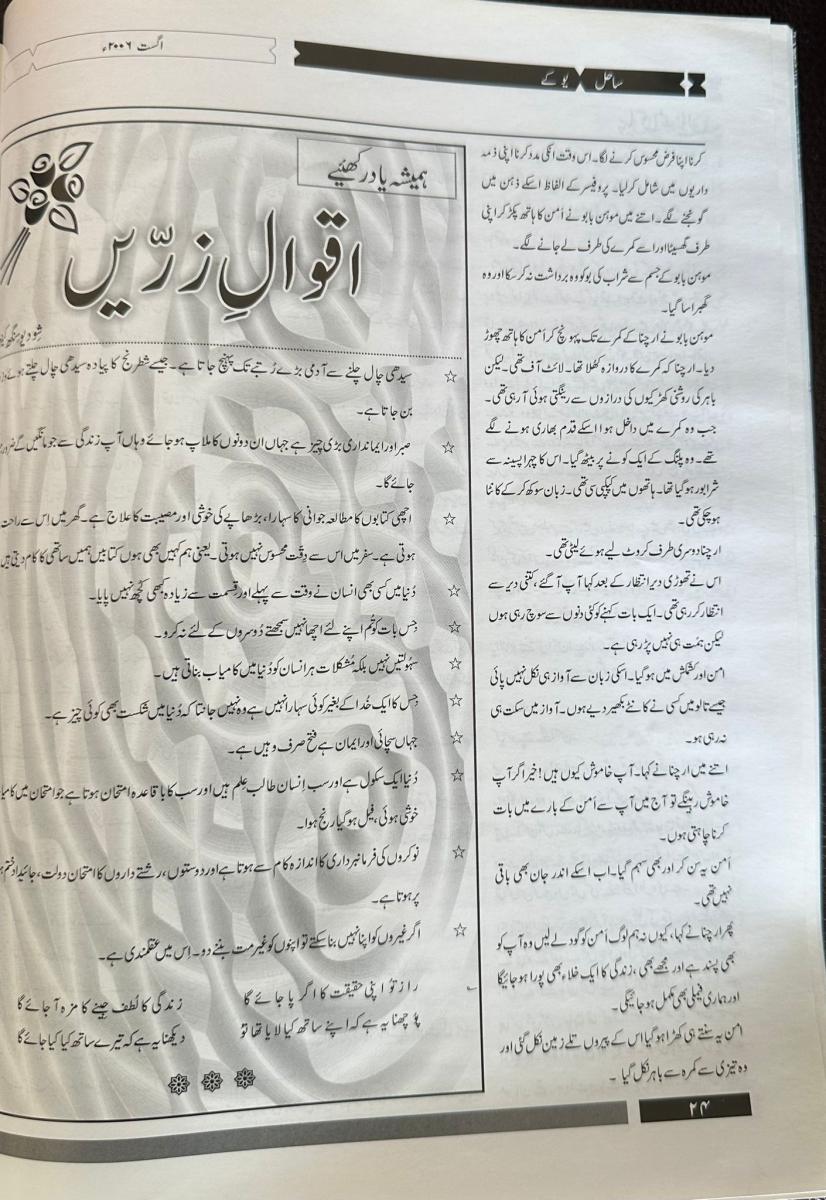 ساحل یو کے
اگست ۲۰۰۶ء
کرنا اپنا فرض محسوس کرنے لگا۔ اس وقت انکی مدد کرنا اپنی ذمہ
داریوں میں شامل کرلیا۔ پروفیسر کے الفاظ اسکے ذہن میں
گونجنے لگے۔ اتنے میں موہن بابو نے اَمن کا ہاتھ پکڑ کر اپنی
طرف گھسیٹا اور اسے کمرے کی طرف لے جانے لگے۔
موہن بابو کے جسم سے شراب کی بو کو وہ برداشت نہ کرسکا اور وہ
گھبرا سا گیا۔
موہن بابو نے ارچنا کے کمرے تک پہونچ کر اَمن کا ہاتھ چھوڑ
دیا۔ ارچنا کہ کمرے کا دروازہ کھلا تھا۔ لائٹ آف تھی۔ لیکن
باہر کی روشنی کھڑکیوں کی درازوں سے رینگتی ہوئی آرہی تھی۔
جب وہ کمرے میں داخل ہوا اسکے قدم بھاری ہونے لگے
تھے۔ وہ پلنگ کے ایک کونے پر بیٹھ گیا۔ اس کا چہرا پسینہ سے
شرابور ہو گیا تھا۔ ہاتھوں میں کپکپی سی تھی۔ زبان سوکھ کر کے کانٹا
ہوچکی تھی۔
ارچنا دوسری طرف کروٹ لیے ہوئے لیٹی تھی۔
اس نے تھوڑی دیر انتظار کے بعد کہا آپ آگئے، کتنی دیر سے
انتظار کر رہی تھی۔ ایک بات کہنے کو کئی دنوں سے سوچ رہی ہوں
لیکن ہمّت ہی نہیں پڑ رہی ہے۔
امن اور کشمکش میں ہو گیا۔ اسکی زبان سے آواز ہی نکل نہیں پائی
جیسے تالو میں کسی نے کانٹے بکھیر دیے ہوں۔ آواز میں سکت ہی
نہ رہی ہو۔
اتنے میں ارچنا نے کہا۔ آپ خاموش کیوں ہیں! خیر اگر آپ
خاموش رہینگے تو آج میں آپ سے اَمن کے بارے میں بات
کرنا چاہتی ہوں۔
اَمن یہ سن کر اور بھی سہم گیا۔ اب اسکے اندر جان بھی باقی
نہیں تھی۔
پھر ارچنا نے کہا، کیوں نہ ہم لوگ اَمن کو گود لے لیں وہ آپ کو
بھی پسند ہے اور مجھے بھی، زندگی کا ایک خلاء بھی پورا ہو جائیگا
اور ہماری فیملی بھی مکمل ہو جائیگی۔
امن یہ سنتے ہی کھڑا ہو گیا اس کے پیروں تلے زمین نکل گئی اور
وہ تیزی سے کمرہ سے باہر نکل گیا۔
ہمیشہ یاد رکھئیے
اقوالِ زرّیں
شِو دیو سنگھ
☆ سیدھی چال چلنے سے آدمی بڑے رُتبے تک پہنچ جاتا ہے۔ جیسے شطرنج کا پیادہ سیدھی چال چلتے ہوئے
بن جاتا ہے۔
☆ صبر اور ایمانداری بڑی چیز ہے جہاں ان دونوں کا ملاپ ہو جائے وہاں آپ زندگی سے جو مانگیں گے ضرور
جائے گا۔
☆ اچھی کتابوں کا مطالعہ جوانی کا سہارا، بڑھاپے کی خوشی اور مصیبت کا علاج ہے۔ گھر میں اس سے راحت
ہوتی ہے۔ سفر میں اس سے دِقّت محسوس نہیں ہوتی۔ یعنی ہم کہیں بھی ہوں کتابیں ہمیں ساتھی کا کام دیتی ہیں
☆ دُنیا میں کسی بھی انسان نے وقت سے پہلے اور قِسمت سے زیادہ کبھی کُچھ نہیں پایا۔
☆ جِس بات کو تُم اپنے لئے اچھا نہیں سمجھتے دُوسروں کے لئے نہ کرو۔
☆ سہُولتیں نہیں بلکہ مُشکلات ہر انسان کو دُنیا میں کامیاب بناتی ہیں۔
☆ جِس کا ایک خُدا کے بغیر کوئی سہارا نہیں ہے وہ نہیں جانتا کہ دُنیا میں شکست بھی کوئی چیز ہے۔
☆ جہاں سچائی اور ایمان ہے فتح صرف وہیں ہے۔
☆ دُنیا ایک سکول ہے اور سب اِنسان طالب عِلم ہیں اور سب کا باقاعدہ امتحان ہوتا ہے جو امتحان میں
خوشی ہوئی، فیل ہو گیا رنج ہوا۔
☆ نوکروں کی فرمانبرداری کا اندازہ کام سے ہوتا ہے اور دوستوں، رشتے داروں کا امتحان دولت، جائیداد ختم
پر ہوتا ہے۔
☆ اگر غیروں کو اپنا نہیں بنا سکتے تو اپنوں کو غیر مت بننے دو۔ اِس میں عقلمندی ہے۔
راز تُو اپنی حقیقت کا اگر پا جائے گا زندگی کا لُطف جِینے کا مزہ آ جائے گا
پُوچھنا یہ ہے کہ اپنے ساتھ کیا لایا تھا تو دیکھنا یہ ہے کہ تیرے ساتھ کیا کیا جائے گا
۲۴